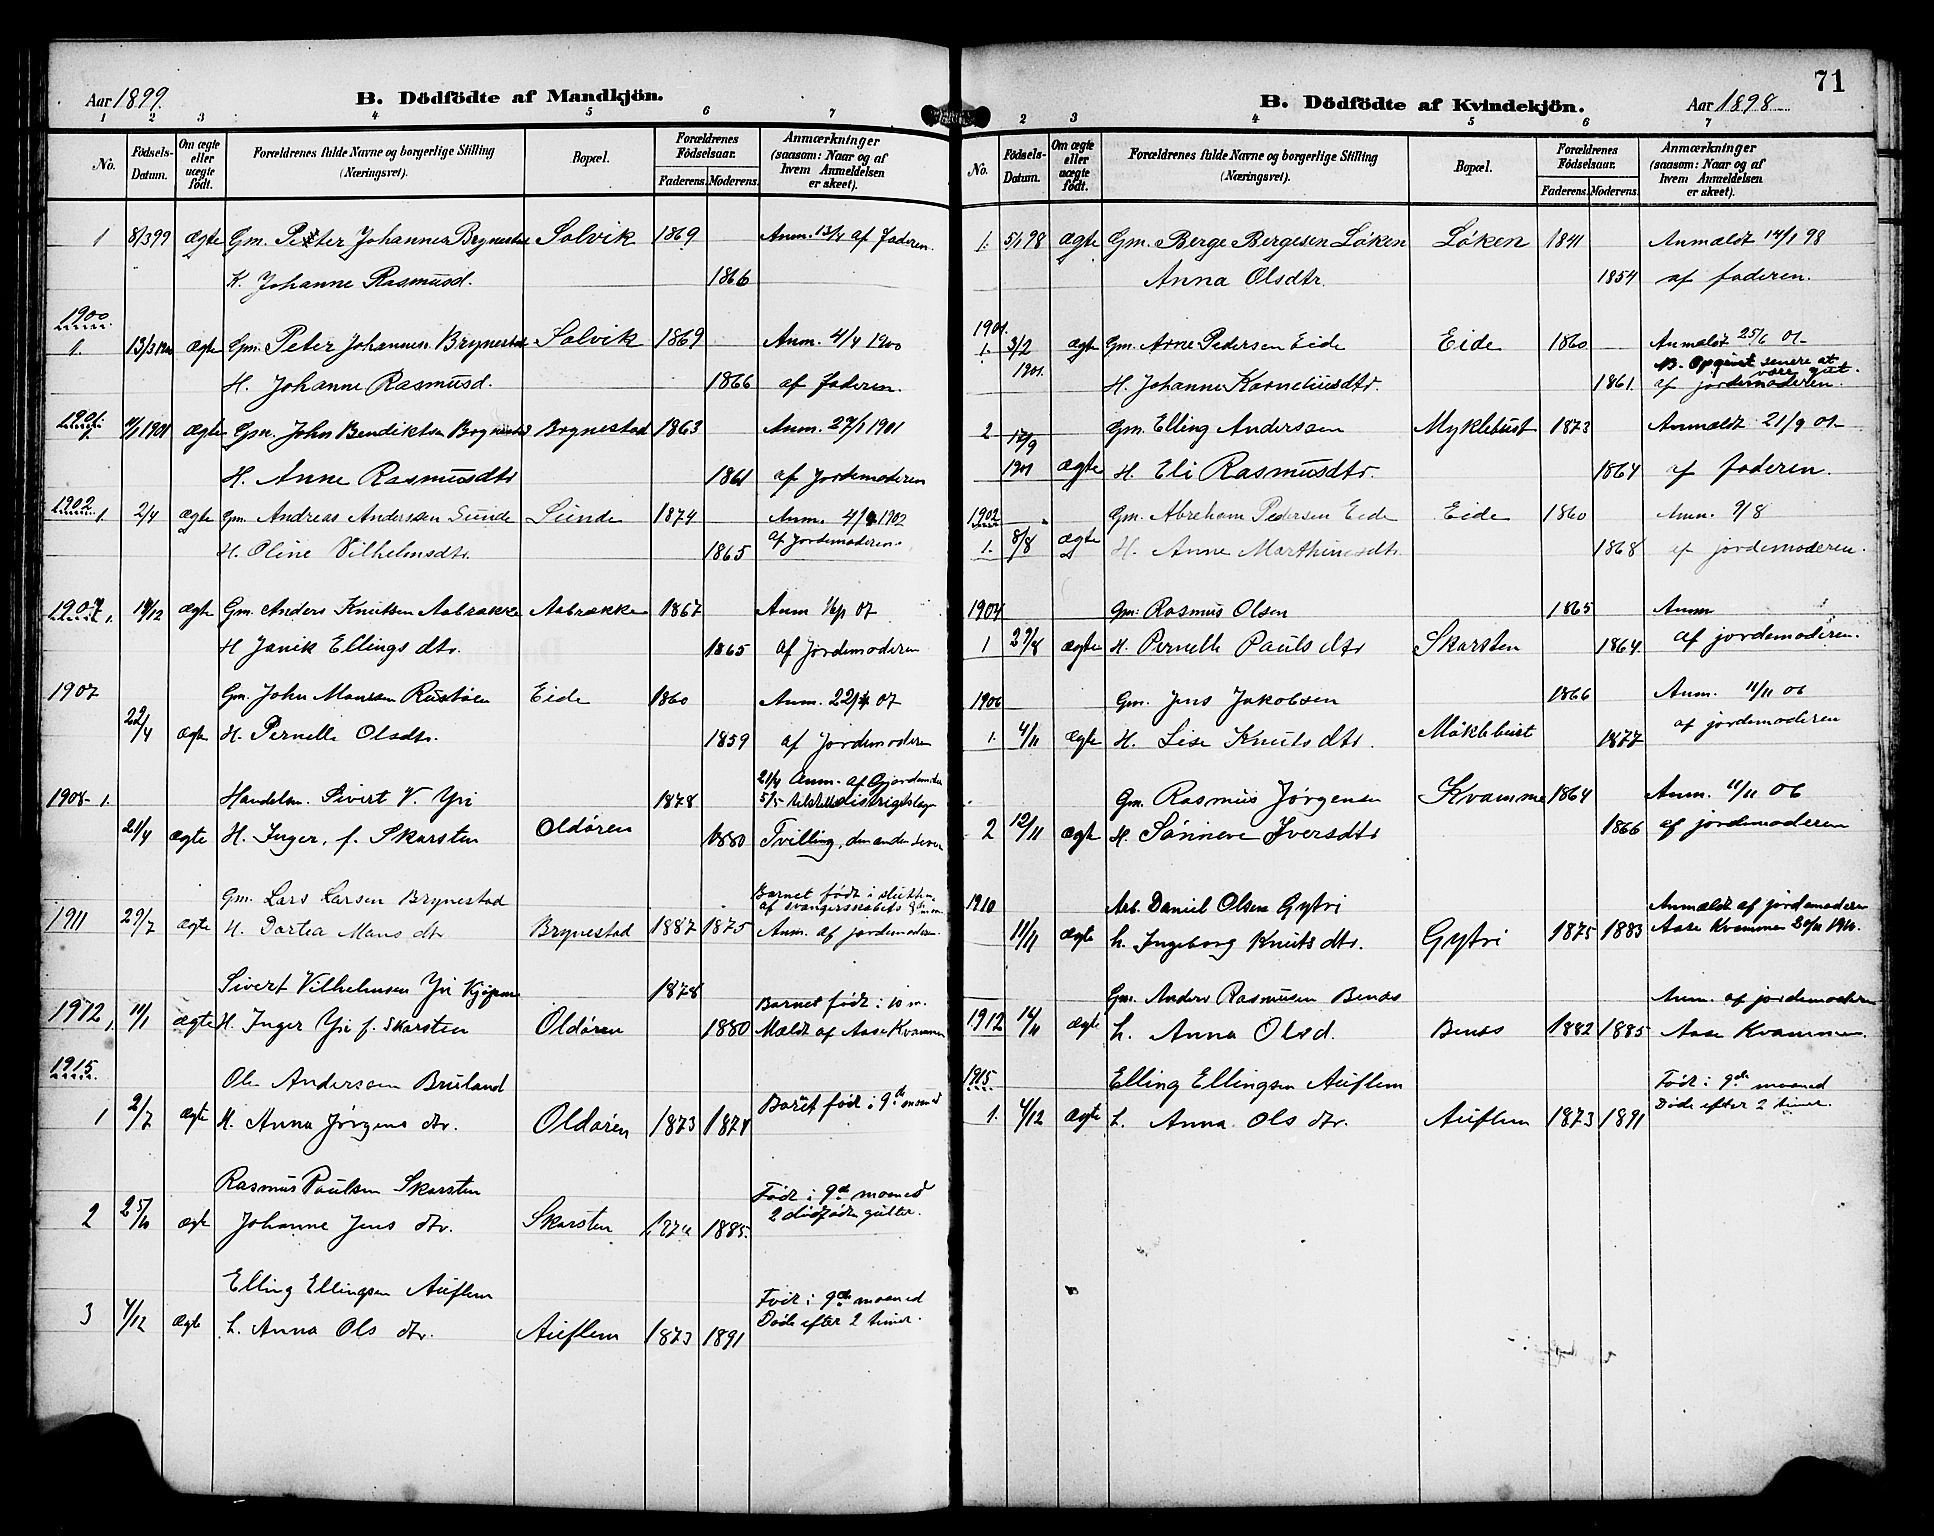 Aar 1899. B. Dödfödte af Mandkjön.
1 2 3 4 5 6 7
No. Födsels-Datum. Om ægte eller uægte födt. Forældrenes fulde Navne og borgerlige Stilling (Næringsvei). Bopæl. Forældrenes Födselsaar. Faderens. Moderens. Anmærkninger (saasom: Naar og af hvem Anmeldelsen er skeet).
1 8/3 99 ægte Gm. Peter Johannes Brynestad Solvik 1869 Anm. af Faderen.
K. Johanne Rasmusd. 1866
1900
1. 13/3 ægte Gm. Peter Johannes. Brynestad Solvik 1869 Anm. 4/4 1900
H. Johanne Rasmusd. 1866 af faderen.
1901.
1901 ægte Gm. John Bendiktsen Brynestad Brynestad 1863 Anm. 27/1 1901
H. Anne Rasmusdtr 1861 af Jordemoderen
1902 1. 2/4 ægte Gm. Andreas Anderssen Sunde Sunde 1874 Anm. 1902
H. Oline Vilhelmsdtr. 1865 af Jordemoderen.
1907 1. ægte Gm. Anders Knutsen Aabrække Aabrække 1867 Anm 07
H Janik Ellings dtr. 1865 af Jordemoderen
1907 Gm. John Monsen Rustöen Eide 1860 Anm. 22/4 07
22/4 ægte H. Pernelle Olsdtr. 1859 af Jordemoderen
21/4 Anm. af
1908 1. Handelsm. Sivert V. Yri 1878 5/5 distriktslægen
21/4 ægte H. Inger, f. Skarsten Oldören 1880 Tvilling, den anden lever
Gm. Lars Larsen Brynestad Barnet födt i slutten af svangerskabets
1911 29/7 ægte H. Dortea Mons dtr. Brynestad 1887 1875 Anm. af jordemoderen.
Sivert Vilhelmsen Yri Kjöpm 1878 Barnet födt i 10 m.
1912 1. 11/1 ægte H. Inger Yri f. Skarsten Oldören 1880 Meldt af Aase Kvammen
1915
Ole Andersen Bruland
1 2/7 ægte H. Anna Jörgens dtr. Oldören 1873 1874 Barnet födt i 9de maaned
Rasmus Paulsen Skarsten Födt i 9de maaned
2 ægte Johanne Jens dtr. Skarsten 1885. 2 dödfödte gutter.
Elling Ellingsen Auflem Födt i 9de maaned
3 4/12 ægte h. Anna Ols dtr. Auflem 1873 1891 Döde efter 2 timer.
71
B. Dödfödte af Kvindekjön. Aar 1898
2 3 4 5 6 7
No. Födsels-Datum. Om ægte eller uægte födt. Forældrenes fulde Navne og borgerlige Stilling (Næringsvei). Bopæl. Forældrenes Födselsaar. Faderens. Moderens. Anmærkninger (saasom: Naar og af hvem Anmeldelsen er skeet).
1. 5/1 98 ægte Gm. Berge Bergesen Löken Löken 1841 Anmeldt 14/1 98
Anna Olsdtr. 1854 af faderen.
1901.
1. 3/2 1901. ægte Gm. Arne Pedersen Eide Eide 1860 Anmeldt 25/6 01-
NB. Opgivet senere at være gut.
H. Johanne Korneliusdtr. 1861. af jordemoderen.
2 17/9 1901 ægte Gm. Elling Anderssen Myklebust 1873 Anmeldt 21/9 01-
H. Eli Rasmusdtr. 1864 af faderen.
1902 Gm. Abraham Pedersen Eide Eide 1860 Anm. 9/8
1. 8/8 ægte H. Anne Marthinusdtr. 1868 af jordemoderen.
1904 Gm. Rasmus Olsen 1865 Anm
1 29/8 ægte H. Pernelle Pauls dtr Skarsten 1864 af jordemoderen.
1906 Gm. Jens Jakobsen 1866 Anm. 11/11 06
1. 4/11 ægte H. Lise Knuts dtr. Möklebust 1877 af jordemoderen
Gm. Rasmus Jørgensen Kvamme 1864 Anm. 11/11 06
2 12/11 ægte H. Sönneve Iversdtr 1866 af jordemoderen
1910 Arb. Daniel Olsen Gytri Anmeldt af jordemoderen
11/11 ægte h. Ingeborg Knuts dtr. Gytri 1875 1883 Aase Kvammen 1910.
Gm. Anders Rasmusen Benas Anm. af jordemoderen
1912 ægte h. Anna Olsd. Benas 1882 1885 Aase Kvammen.
1915 Elling Ellingsen Auflem Födt i 9de maaned
1. 4/12 ægte h. Anna Ols dtr. Auflem 1873 1891 Döde efter 2 timer.